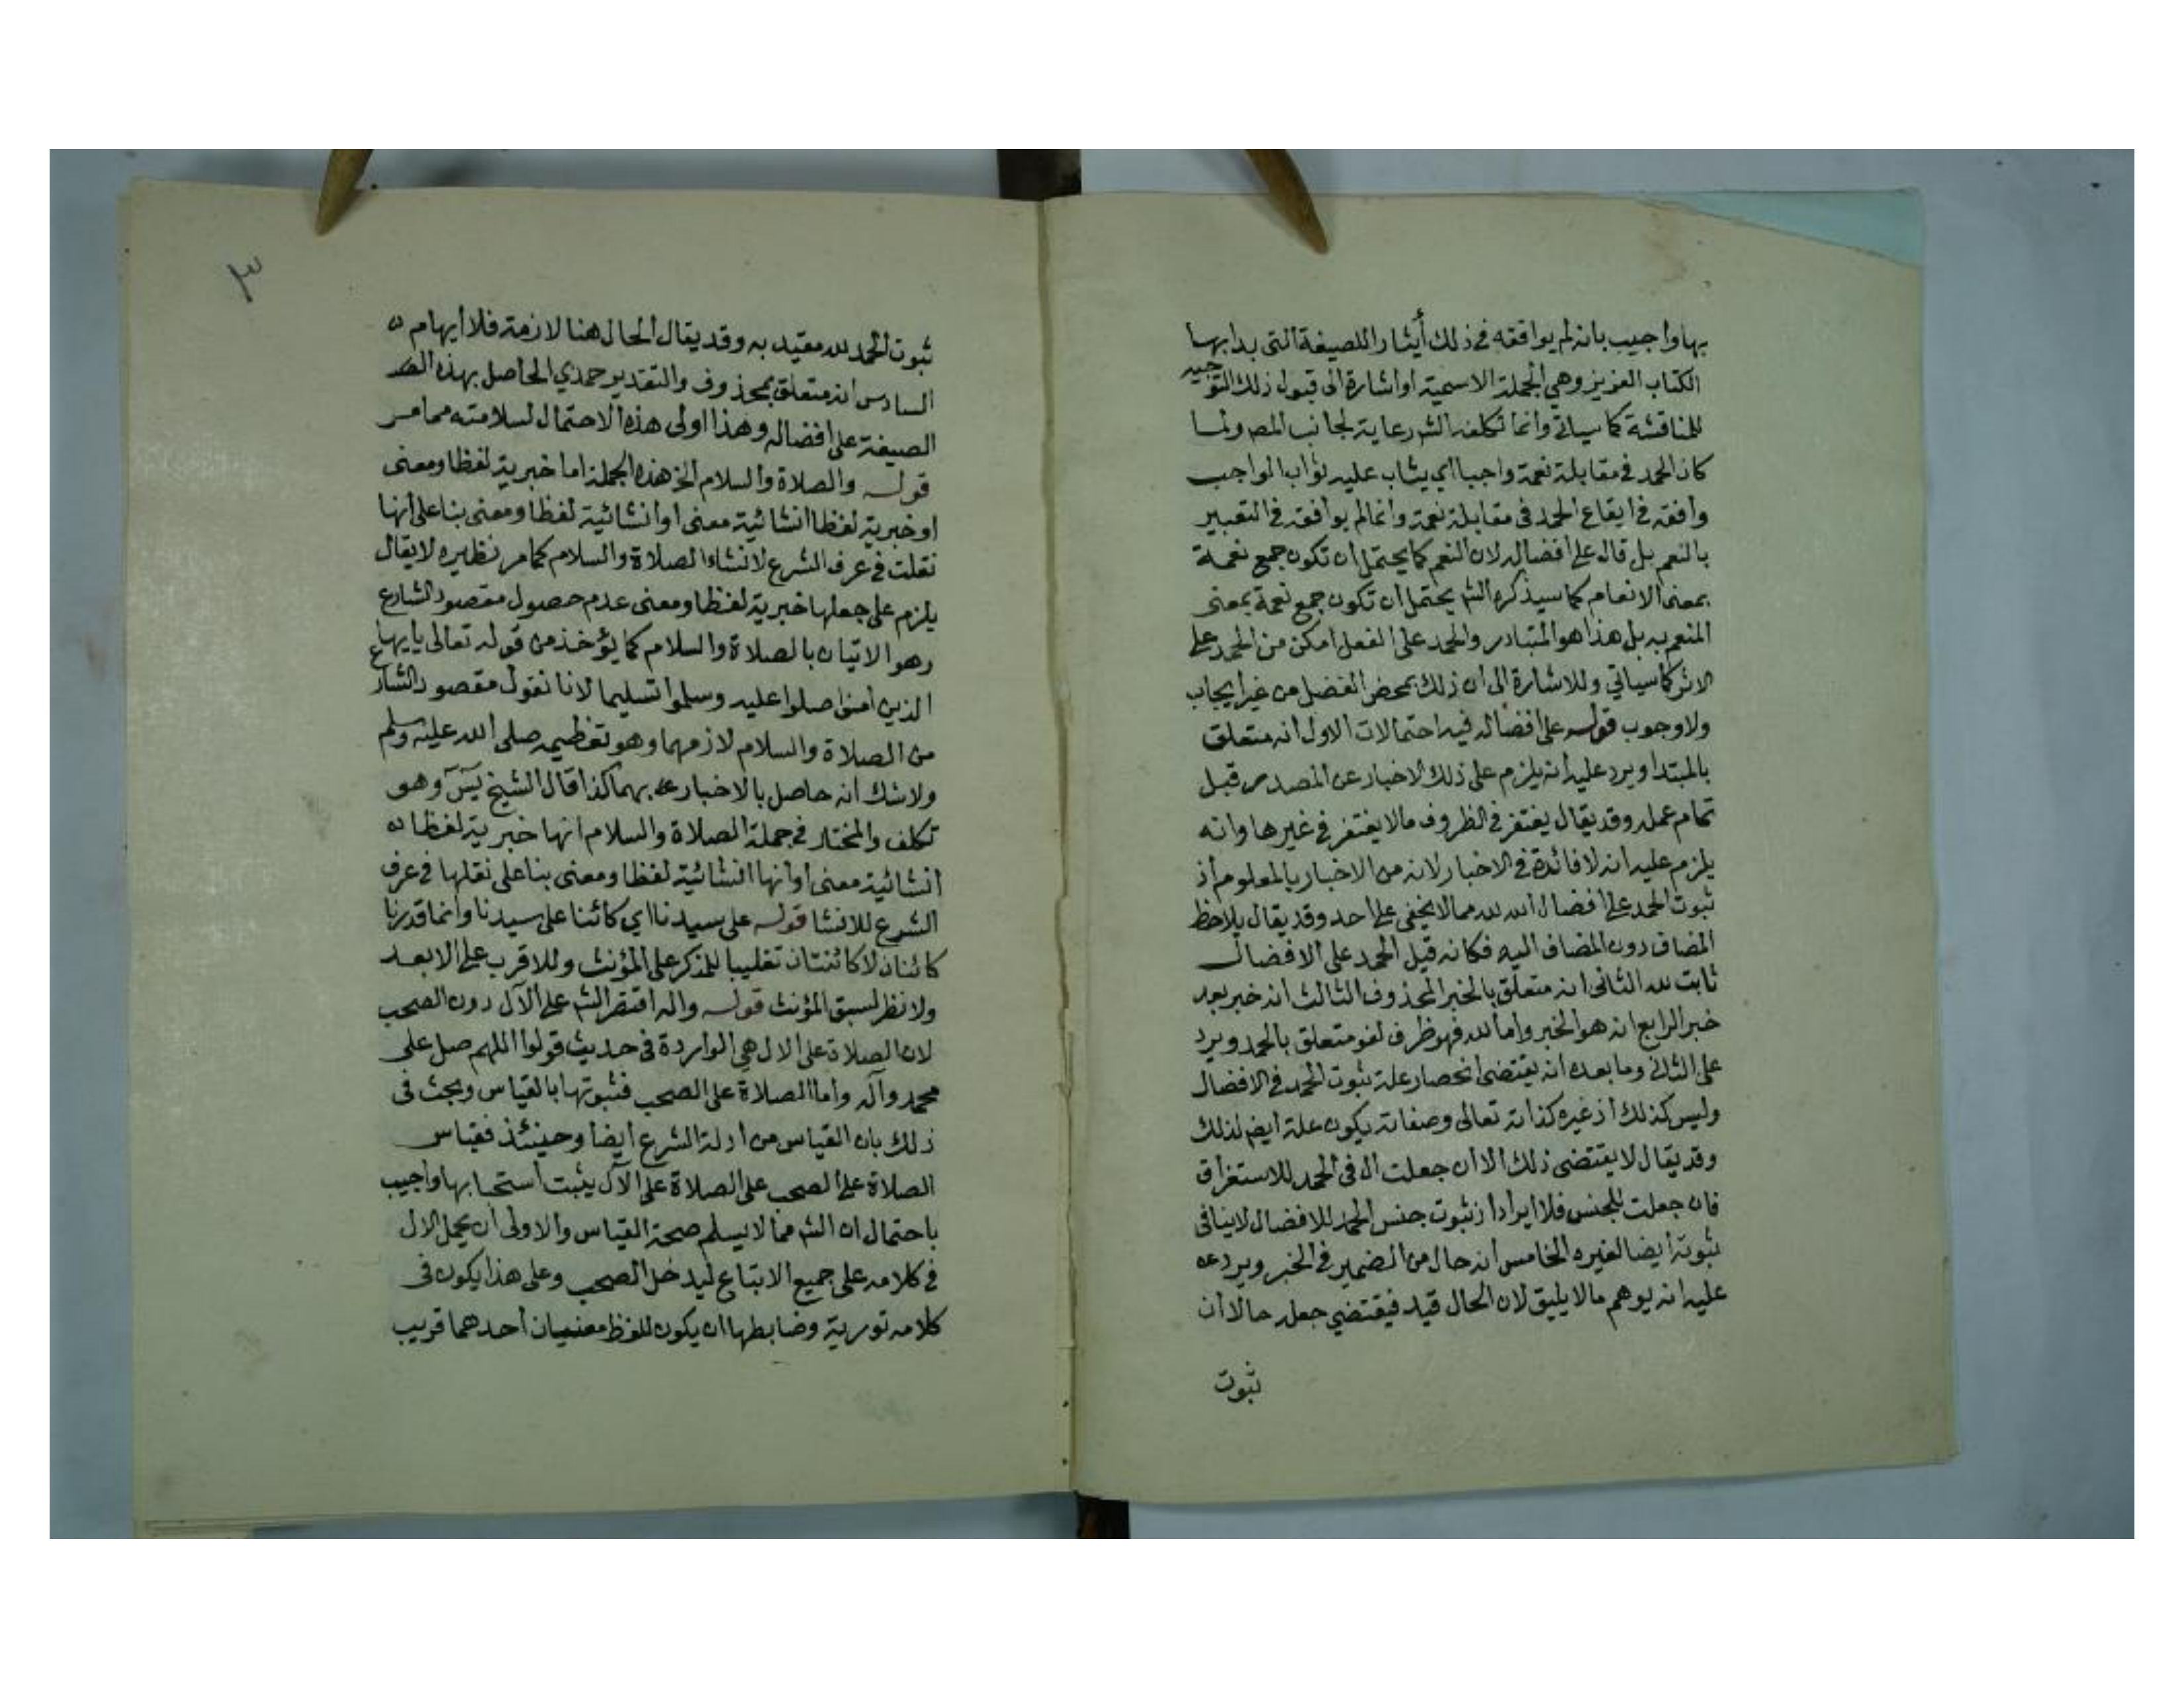 بها واجيب بانه لم يوافقه في ذلك أيثارا للصيغة التي بدا بها
الكتاب العزيز وهي الجملة الاسمية او اشارة الى قبول ذلك التوجيه
للمناقشة كما سياتي وانما تكلفه الشـ رعاية لجانب المصـ ولما
كان الحمد في مقابلة نعمة واجبا اي يثاب عليه ثواب الواجب
وافقه في ايقاع الحمد في مقابلة نعمة وانما لم يوافقه في التعبير
بالنعم بل قال على افضاله لان النعم كما يحتمل ان تكون جمع نعمة
بمعنى الانعام كما سيذكره الشـ يحتمل ان تكون جمع نعمة بمعنى
المنعم به بل هذا هو المتبادر والحمد على الفعل امكن من الحمد على
الاثر كما سياتي وللاشارة الى ان ذلك بمحض الفضل من غير ايجاب
ولا وجوب قوله على افضاله فيه احتمالات الاول انه متعلق
بالمبتدا ويرد عليه انه يلزم على ذلك الاخبار عن المصدر قبل
تمام عمله وقد يقال يغتفر في الظروف مالا يغتفر في غيرها وانه
يلزم عليه انه لا فائدة في الاخبار لانه من الاخبار بالمعلوم اذ
ثبوت الحمد على افضال الله لله مما لا يخفى على احد وقد يقال يلاحظ
المضاف دون المضاف اليه فكانه قيل الحمد على الافضال
ثابت لله الثاني انه متعلق بالخبر المحذوف الثالث انه خبر بعد
خبر الرابع انه هو الخبر واما لله فهو ظرف لغو متعلق بالحمد ويرد
على الثاني وما بعده انه يقتضي انحصار علة ثبوت الحمد في الافضال
وليس كذلك اذ غيره كذاته تعالى وصفاته يكون علة ايضـ لذلك
وقد يقال لا يقتضي ذلك الا ان جعلت ال في الحمد للاستغراق
فان جعلت للجنس فلا ايراد اذ ثبوت جنس الحمد للافضال لا ينافي
ثبوته ايضا لغيره الخامس انه حال من الضمير في الخبر ويرد
عليه انه يوهم مالا يليق لان الحال قيد فيقتضي جعله حالا ان
ثبوت
٣
ثبوت الحمد لله مقيد به وقد يقال الحال هنا لازمة فلا ايهام
السادس انه متعلق بمحذوف والتقدير حمدي الحاصل بهذه
الصيغة على افضاله وهذا اولى هذه الاحتمال لسلامته مما مر
قوله والصلاة والسلام الخ هذه الجملة اما خبرية لفظا ومعنى
او خبرية لفظا انشائية معنى او انشائية لفظا ومعنى بنا على انها
نقلت في عرف الشرع لانشاء الصلاة والسلام كما مر نظيره لا يقال
يلزم على جعلها خبرية لفظا ومعنى عدم حصول مقصود الشارع
وهو الاتيان بالصلاة والسلام كما يؤخذ من قوله تعالى يايها
الذين امنوا صلوا عليه وسلموا تسليما لانا نقول مقصود الشارع
من الصلاة والسلام لازمهما وهو تعظيمه صلى الله عليه وسلم
ولا شك انه حاصل بالاخبار بهما كذا قال الشيخ يس وهو
تكلف والمختار في جملة الصلاة والسلام انها خبرية لفظا
انشائية معنى او انها انشائية لفظا ومعنى بنا على نقلها في عرف
الشرع للانشا قوله على سيدنا اي كائنا على سيدنا وانما قدرنا
كائنان لا كائنتان تغليبا للمذكر على المؤنث وللاقرب على الابعد
ولا نظر لسبق المؤنث قوله واله اقتصر الشـ على الآل دون الصحب
لان الصلاة على الال هي الواردة في حديث قولوا اللهم صل على
محمد وآله واما الصلاة على الصحب فثبوتها بالقياس وبحث في
ذلك بان القياس من ادلة الشرع ايضا وحينئذ فقياس
الصلاة على الصحب على الصلاة على الآل يثبت استحبابها واجيب
باحتمال ان الشـ ممن لا يسلم صحة القياس والاولى ان يحمل الال
في كلامه على جميع الاتباع ليدخل الصحب وعلى هذا يكون في
كلامه تورية وضابطها ان يكون للفظ معنيان احدهما قريب